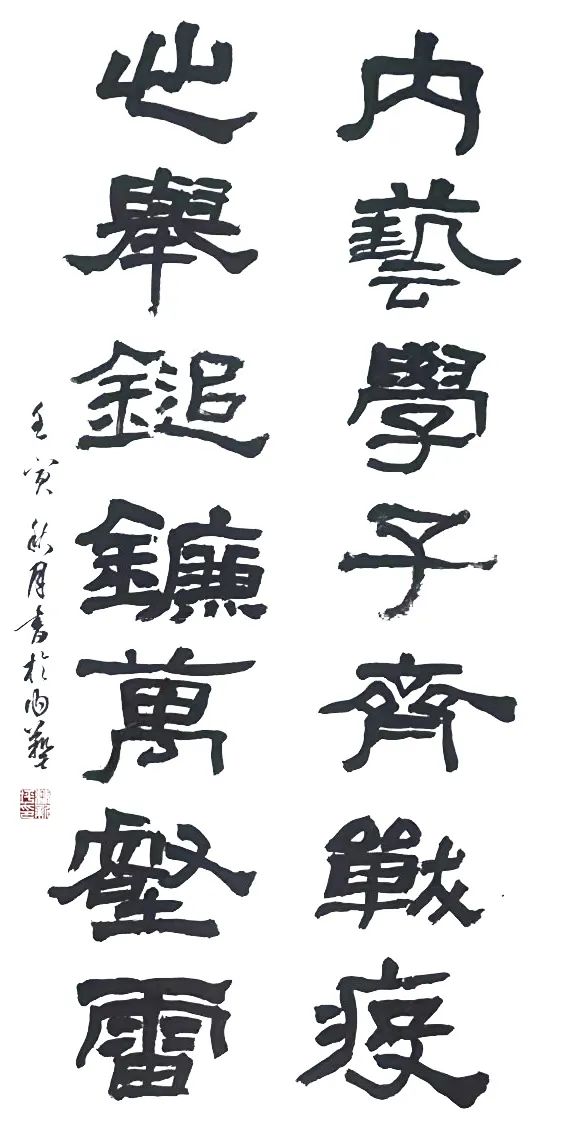 內藝學子齊戰疫
心舉鎚鐮萬壑雷
壬寅秋月書於內藝